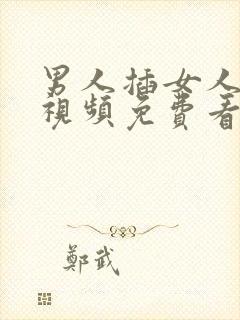 男人插女人
視頻免費看
鄭武